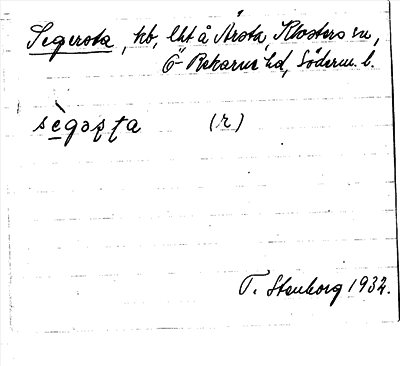 Segersta, hb, lht å Årsta Klosters m,
Ö Rekarne hd, Söderm. l.
sègoʂʈa (r)
T. Stenborg 1932.